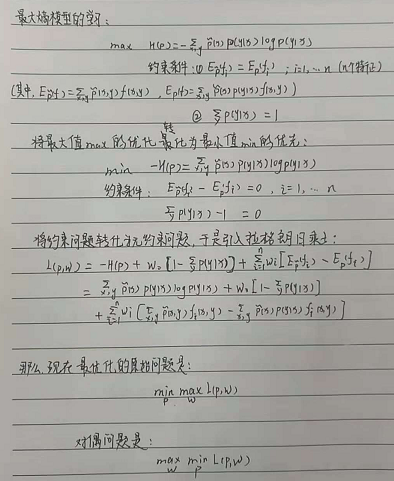 最大熵模型的学习:
max H(p)=-Σx,y p̃(x)p(y|x)logp(y|x)
约束条件:① Ep̃(fi)=Ep(fi) ; i=1,…n (n个特征)
(其中, Ep̃(f)=Σx,y p̃(x,y)f(x,y) , Ep(f)=Σx,y p̃(x)p(y|x)f(x,y) )
② Σy p(y|x)=1
将最大值max的优化转化为最小值min的优先:
min -H(p)=Σx,y p̃(x)p(y|x)logp(y|x)
约束条件: Ep̃(fi) - Ep(fi) =0 , i=1,… n
Σy p(y|x)-1 =0
将约束问题转化为无约束问题,于是引入拉格朗日乘子:
L(p,w) = -H(p) + w₀[1-Σy p(y|x)] + Σi=1ⁿ wi[Ep̃(fi) - Ep(fi)]
= Σx,y p̃(x)p(y|x)logp(y|x) + w₀[1-Σy p(y|x)]
+ Σi=1ⁿ wi[Σx,y p̃(x,y)fi(x,y) - Σx,y p̃(x)p(y|x)fi(x,y)]
那么,现在最优化的原始问题是:
min p max w L(p,w)
对偶问题是:
max w min p L(p,w)